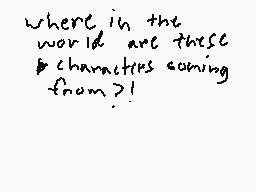 where in the
world are these
characters coming
from?!